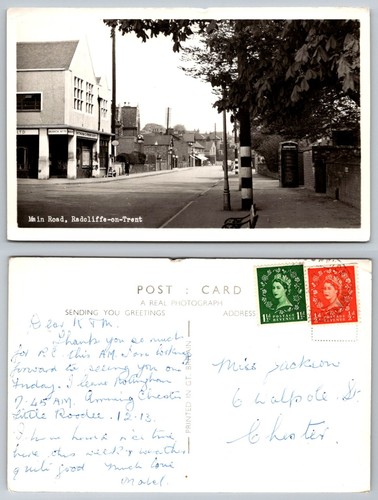 Main Road, Radcliffe-on-Trent
POST : CARD
A REAL PHOTOGRAPH
SENDING YOU GREETINGS
ADDRESS
PRINTED IN GT. BRITAIN
1½D
1½D
POSTAGE
REVENUE
½D
½D
POSTAGE
REVENUE
Dear K & M.
Thank you so much
for P.C. this AM. I am looking
forward to seeing you on
Friday. I leave Nottingham
7.45 A.M. Arriving Chester
Little Roodee 12.13.
I have had a nice time
here this week & weather
quite good Much love
Mabel.
Miss Jackson
6 Walpole St.
Chester.